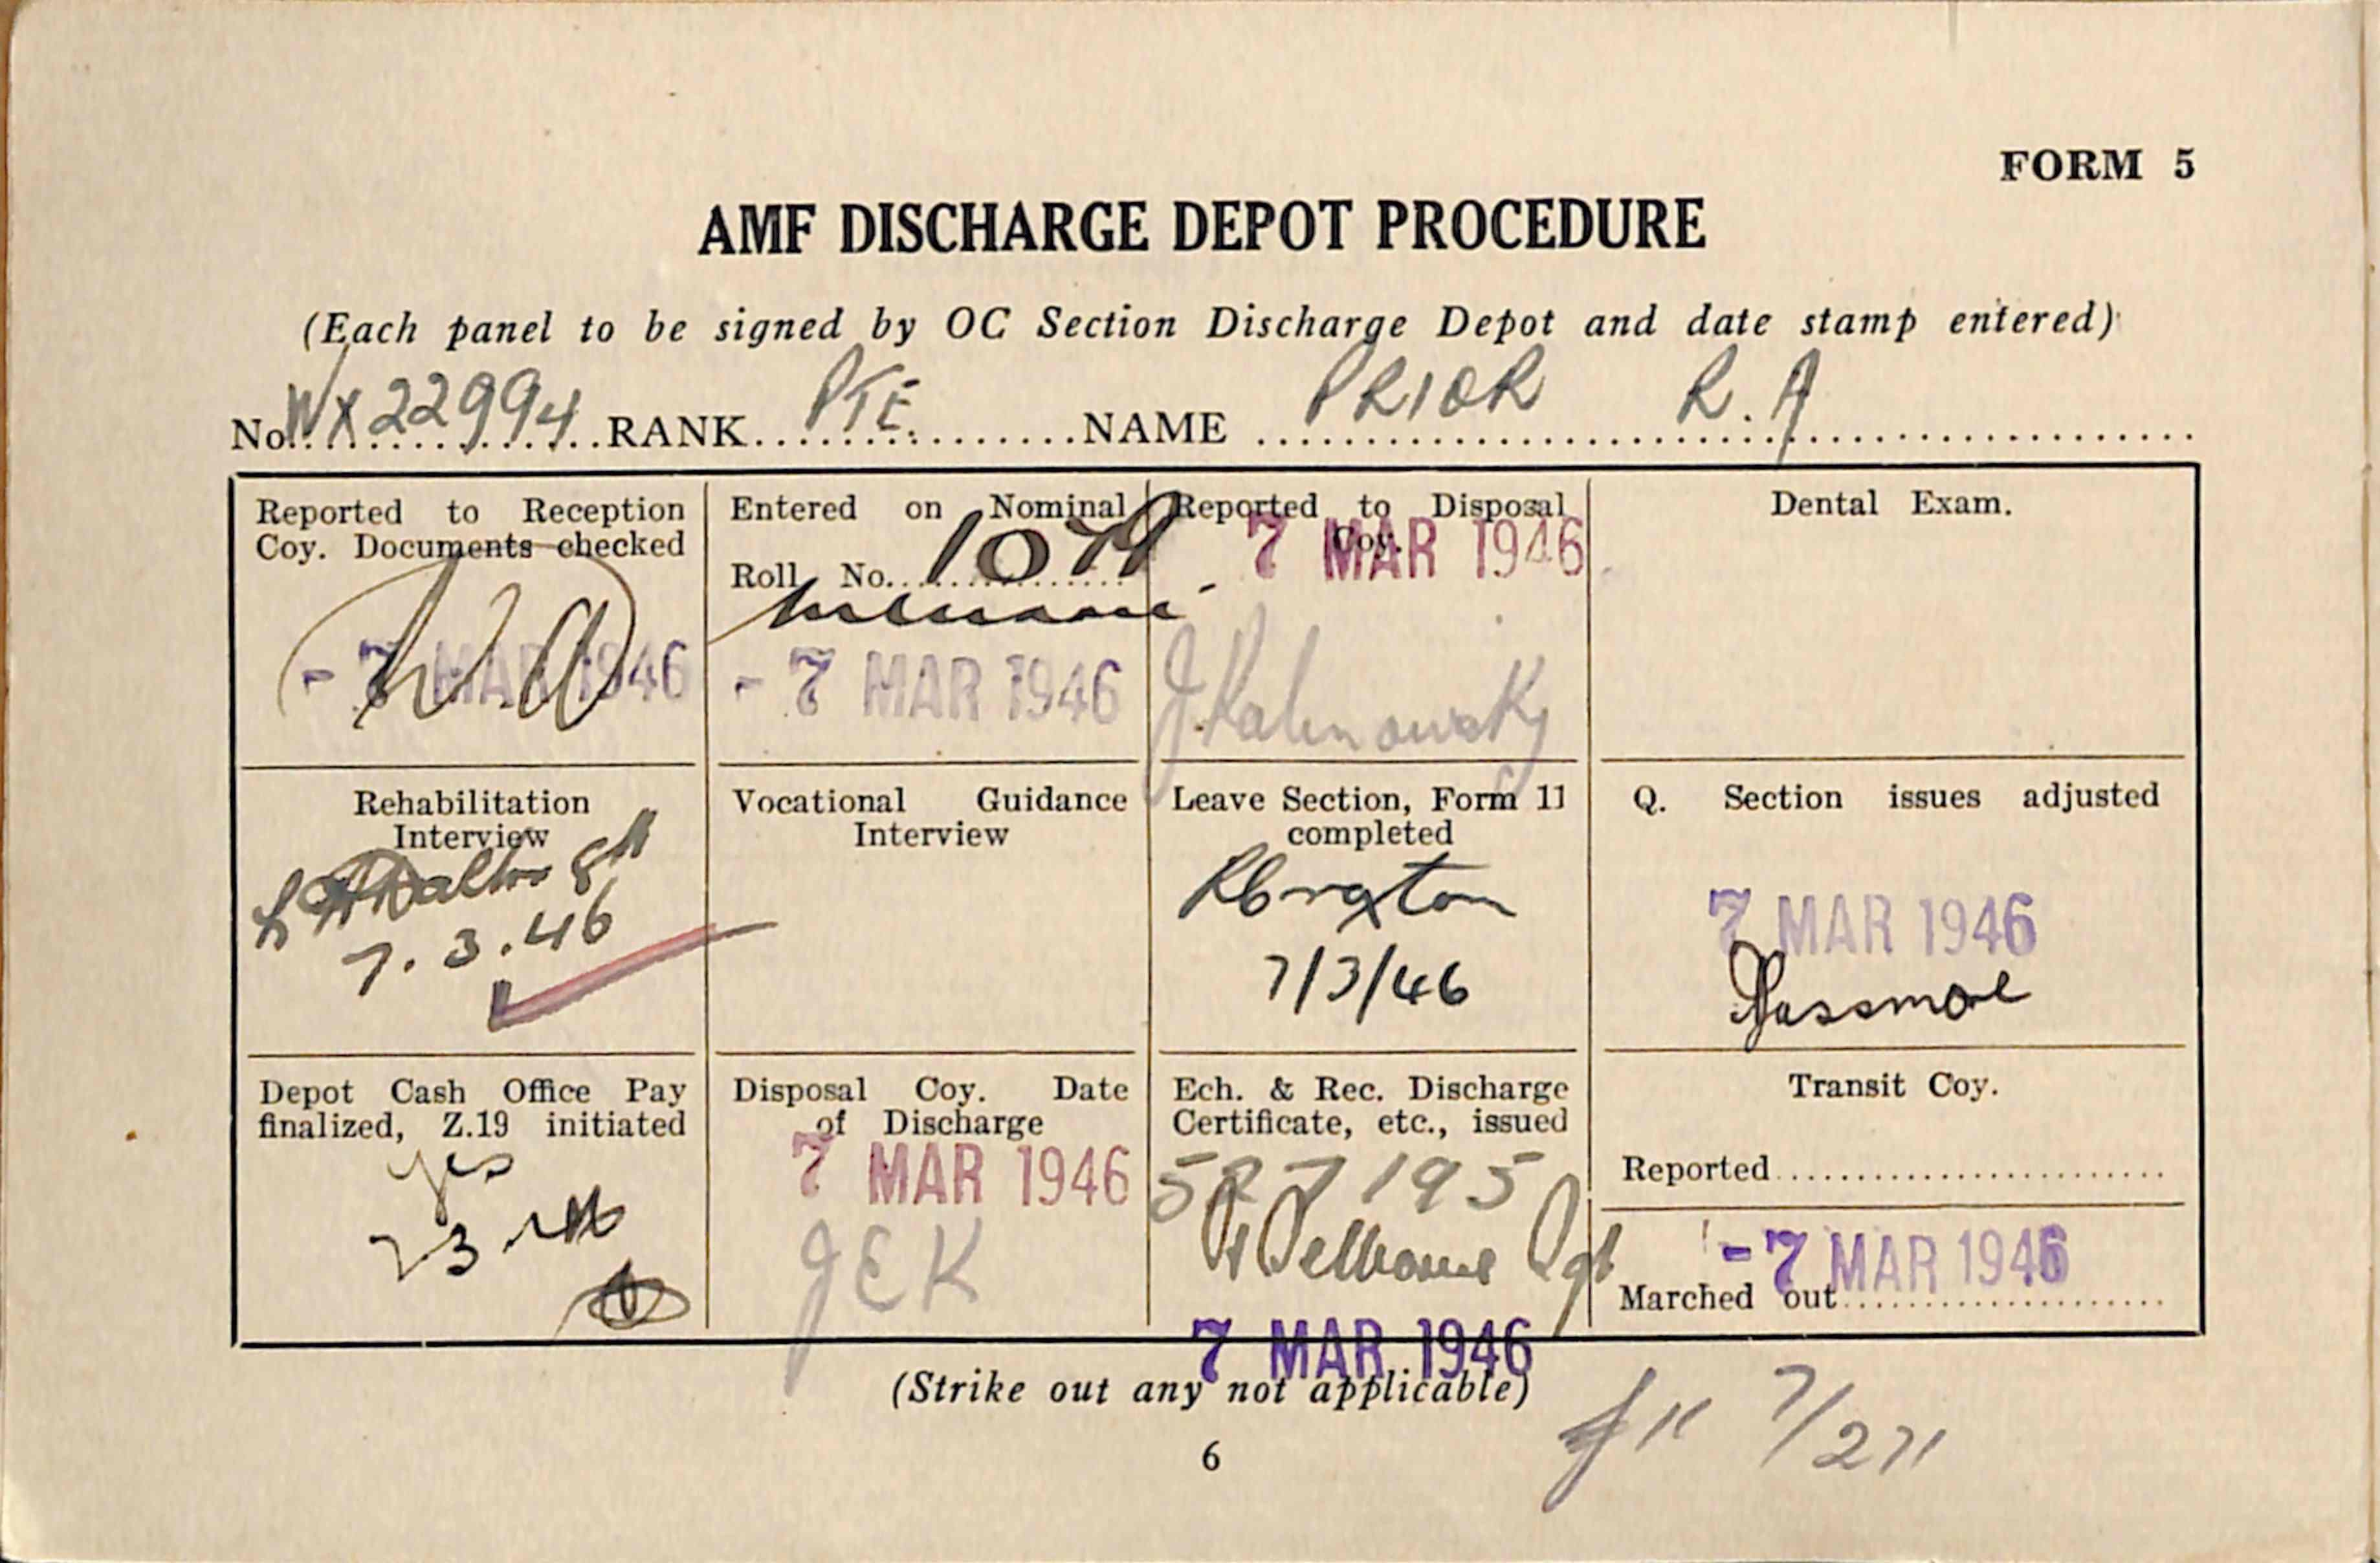 FORM 5
AMF DISCHARGE DEPOT PROCEDURE
(Each panel to be signed by OC Section Discharge Depot and date stamp entered)
No. WX22994 RANK PTE. NAME PRIOR R.A
Reported to Reception
Coy. Documents checked
- 7 MAR 1946
Entered on Nominal
Roll No.
- 7 MAR 1946
Reported to Disposal
Coy.
7 MAR 1946
J Kalinowsky
Dental Exam.
Rehabilitation
Interview
7.3.46
Vocational Guidance
Interview
Leave Section, Form 11
completed
7/3/46
Q. Section issues adjusted
7 MAR 1946
Passmore
Depot Cash Office Pay
finalized, Z.19 initiated
yes
Disposal Coy. Date
of Discharge
7 MAR 1946
JEK
Ech. & Rec. Discharge
Certificate, etc., issued
527195
7 MAR 1946
Transit Coy.
Reported
- 7 MAR 1946
Marched out
(Strike out any not applicable)
6